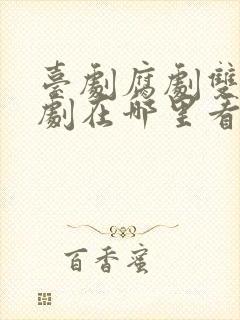 臺劇腐劇雙
劇在哪里看
百香蜜